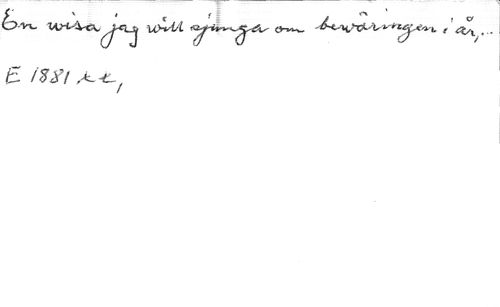 En wisa jag will sjunga om bewäringen i år,..
E 1881 tt,